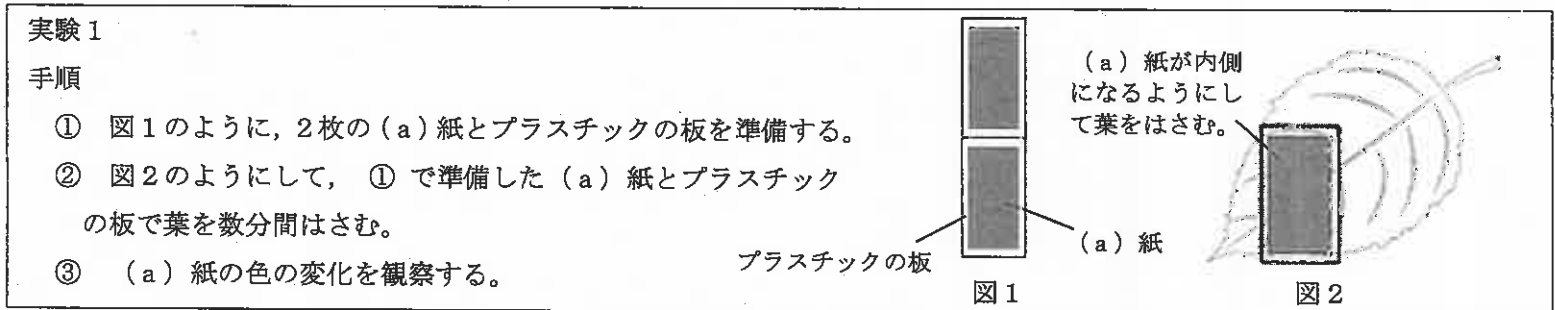 実験1
手順
① 図1のように，2枚の(a)紙とプラスチックの板を準備する。
② 図2のようにして， ①で準備した(a)紙とプラスチック
の板で葉を数分間はさむ。
③ (a)紙の色の変化を観察する。
プラスチックの板
(a)紙
図1
(a)紙が内側
になるようにし
て葉をはさむ。
図2